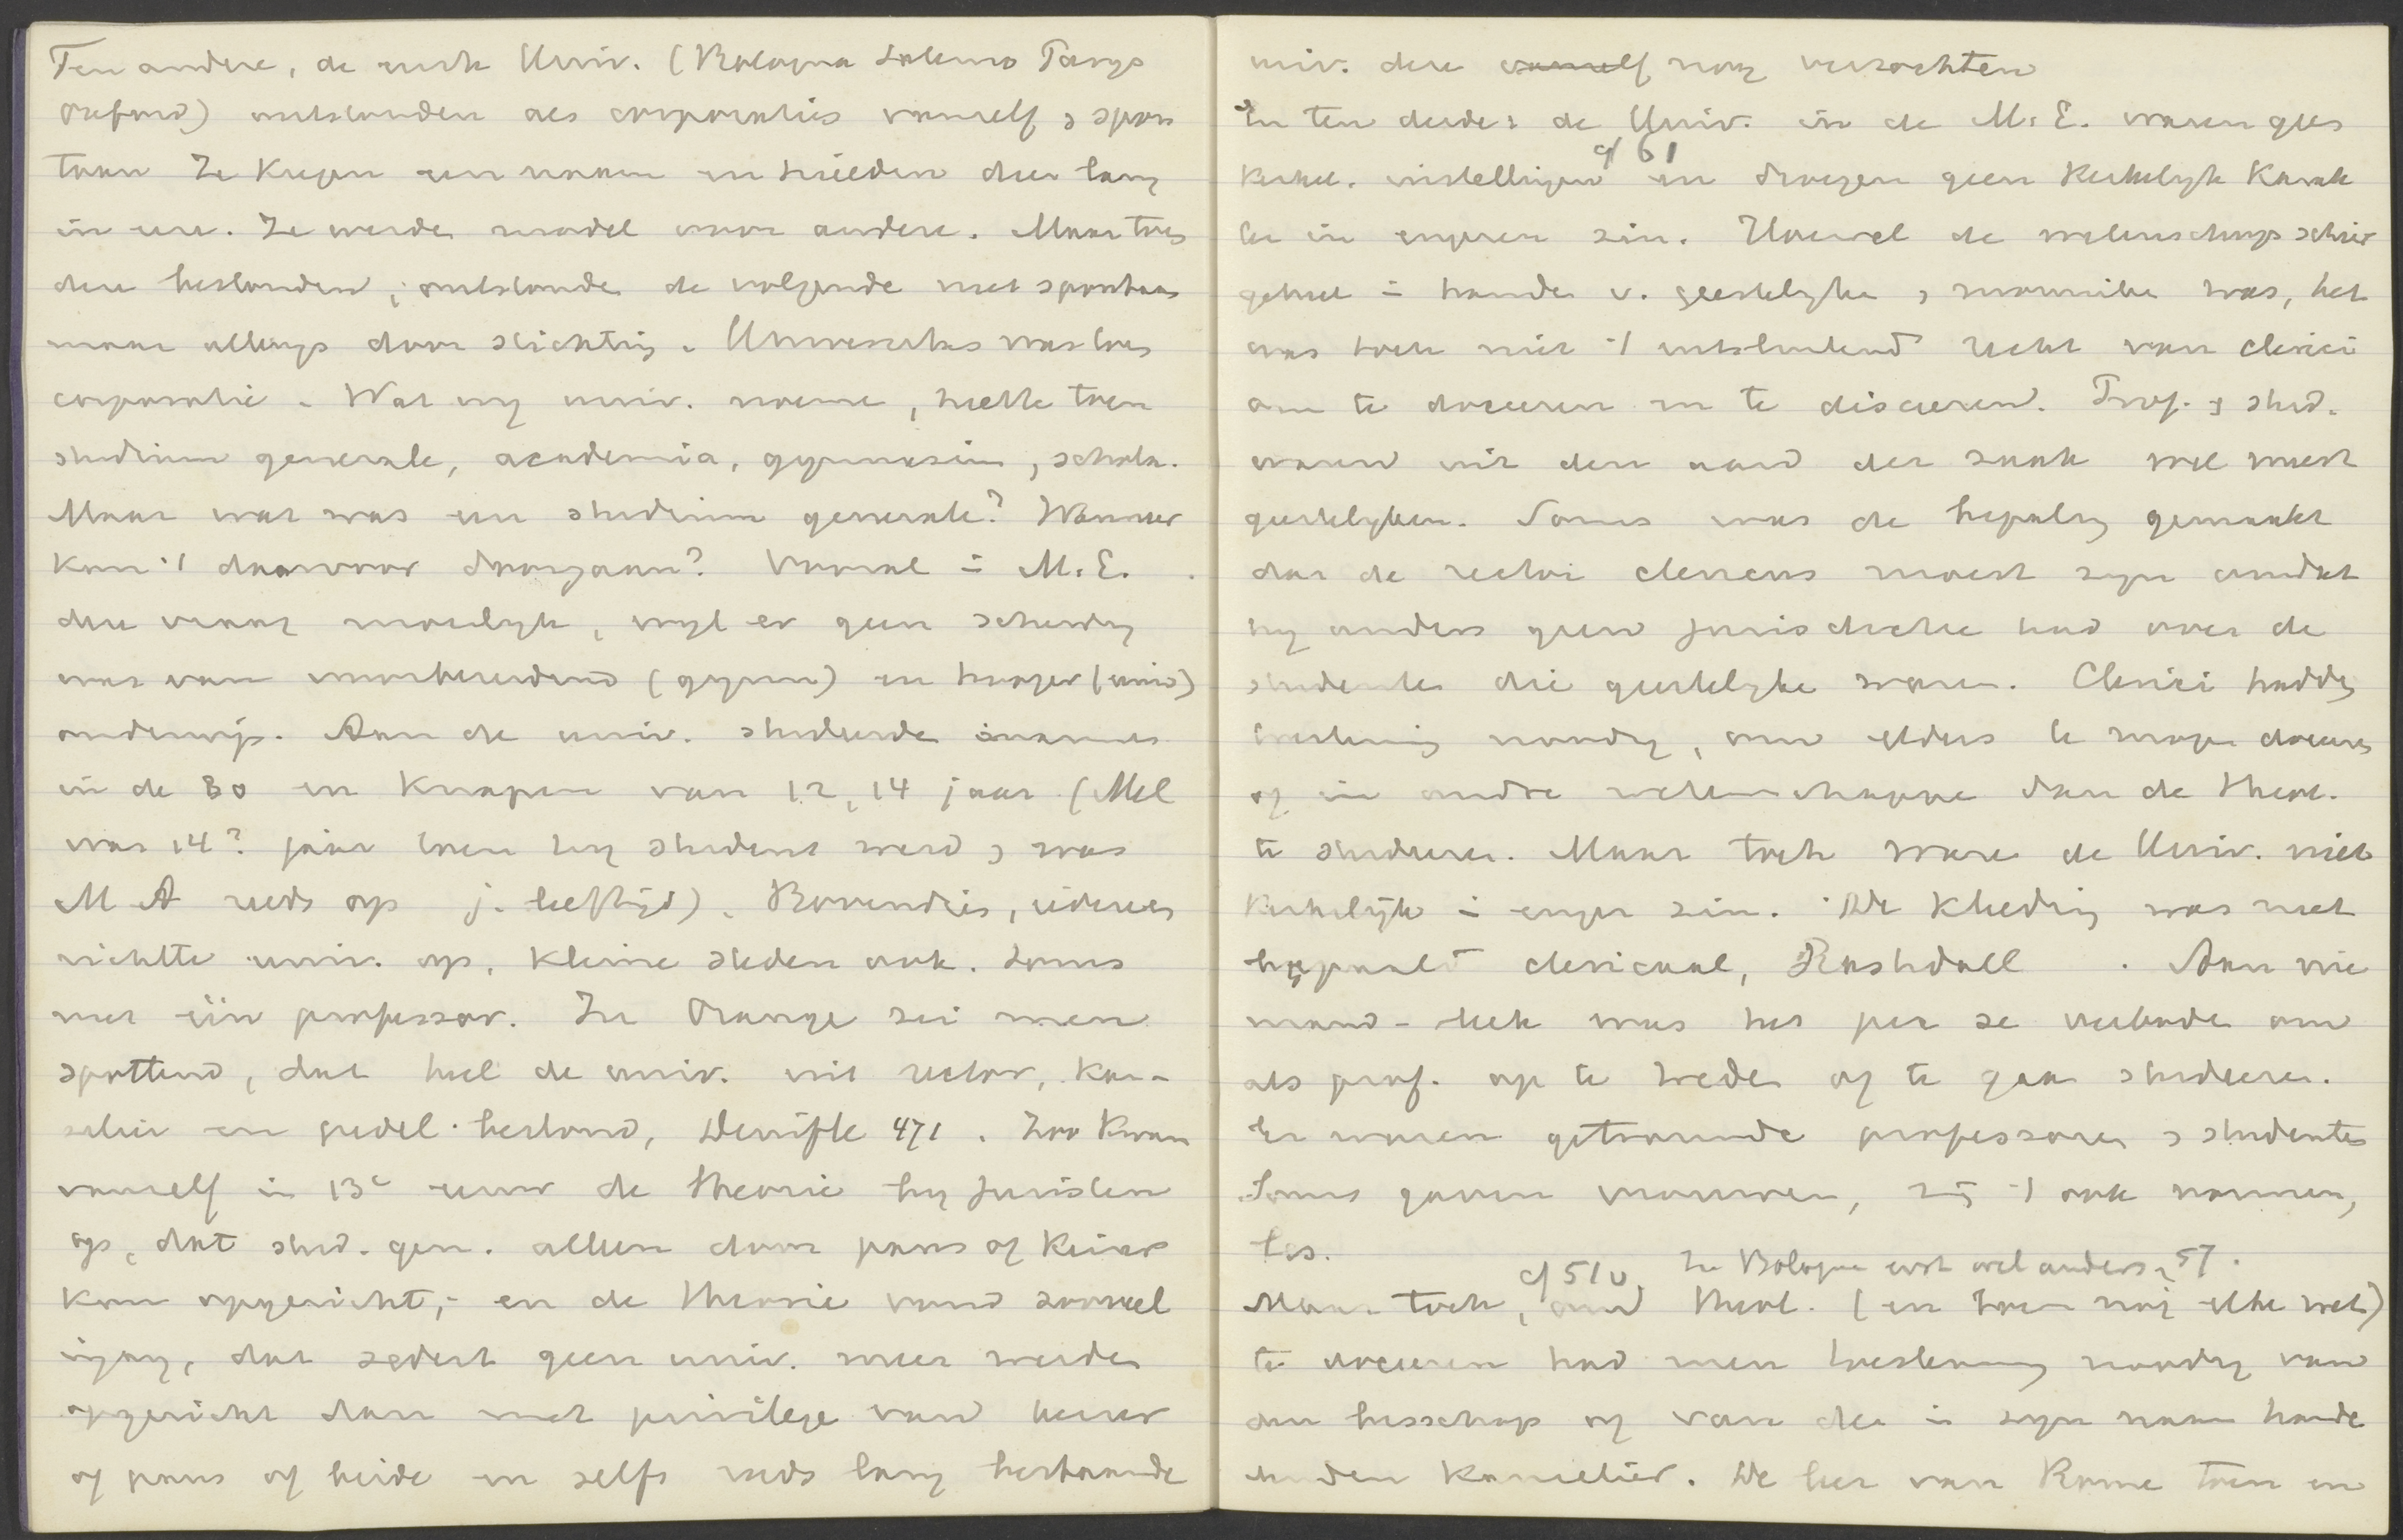 Ten andere, de eerste Univ. (Bologna Salerno Parijs
Oxford) ontstonden als corporaties vanself & spon
taan Ze kregen een naam en hielden die lang
in eere. Ze werden model voor andere. Maar toen
deze bestonden, ontstonden de volgende niet spontaan
maar allengs door stichting. Universitas was toen
corporatie. Wat wij univ. noemen, heette toen
studium generale, academia, gymnasium, schola.
Maar wat was een studium generale? Wanneer
kon 't daarvoor doorgaan? Vooral in M.E.
die vraag moeilijk, wijl er geen scheiding
was van voorbereidend (gymn) en hooger (univ)
onderwijs. Aan de univ. studeerden mannen
in de 30 en knapen van 12, 14 jaar (Mel
was 14? jaar toen hij student werd, & was
M A reeds op j. leeftijd). Bovendien, iedereen
richtte univ. op, kleine steden ook. Soms
met één professor. In Orange zei men
spottend, dat heel de univ. uit rector, kan-
selier en pedel bestond, Denifle 471. Zoo kwam
vanself in 13e eeuw de theorie bij juristen
op, dat stud. gen. alleen door paus of keizer
kon opgericht, en de theorie vond zooveel
ingang, dat sedert geen univ. meer werden
opgericht dan met privilege van keizer
of paus of beide en zelfs reeds lang bestaande
univ. deze vanself nog verzochten
En ten derde: de Univ. in de M.E. waren geen
cf 61
kerkel. instellingen en droegen geen kerkelijk karak
ter in engeren zin. Hoewel de wetenschap schier
geheel in handen v. geestelijken & monniken was, het
was toch niet 't uitsluitend recht van clerici
om te doceeren en te disceeren. Prof. & stud.
waren uit den aard der zaak wel meest
geestelijken. Soms was de bepaling gemaakt
dat de rector clericus moest zijn omdat
hij anders geen jurisdictie had over de
studenten die geestelijke waren. Clerici hadden
toestemming noodig, om elders te mogen doceeren
of in andre wetenschappen dan de theol.
te studeeren. Maar toch waren de Univ. niet
kerkelijk in engen zin. De kleeding was niet
bepaald clericaal, Rashdall . Aan nie
mand-leek was het per se verboden om
als prof. op te treden of te gaan studeeren.
Er waren getrouwde professoren & studenten
Soms gaven vrouwen, zij 't ook nonnen,
les.
cf 510. In Bologna eerst wel anders, 57.
Maar toch, om theol. (en toen nog elke wet.)
te doceeren had men toestemming noodig van
den bisschop of van den in zijn naam hande
lenden kanselier. De leer van Rome toen en